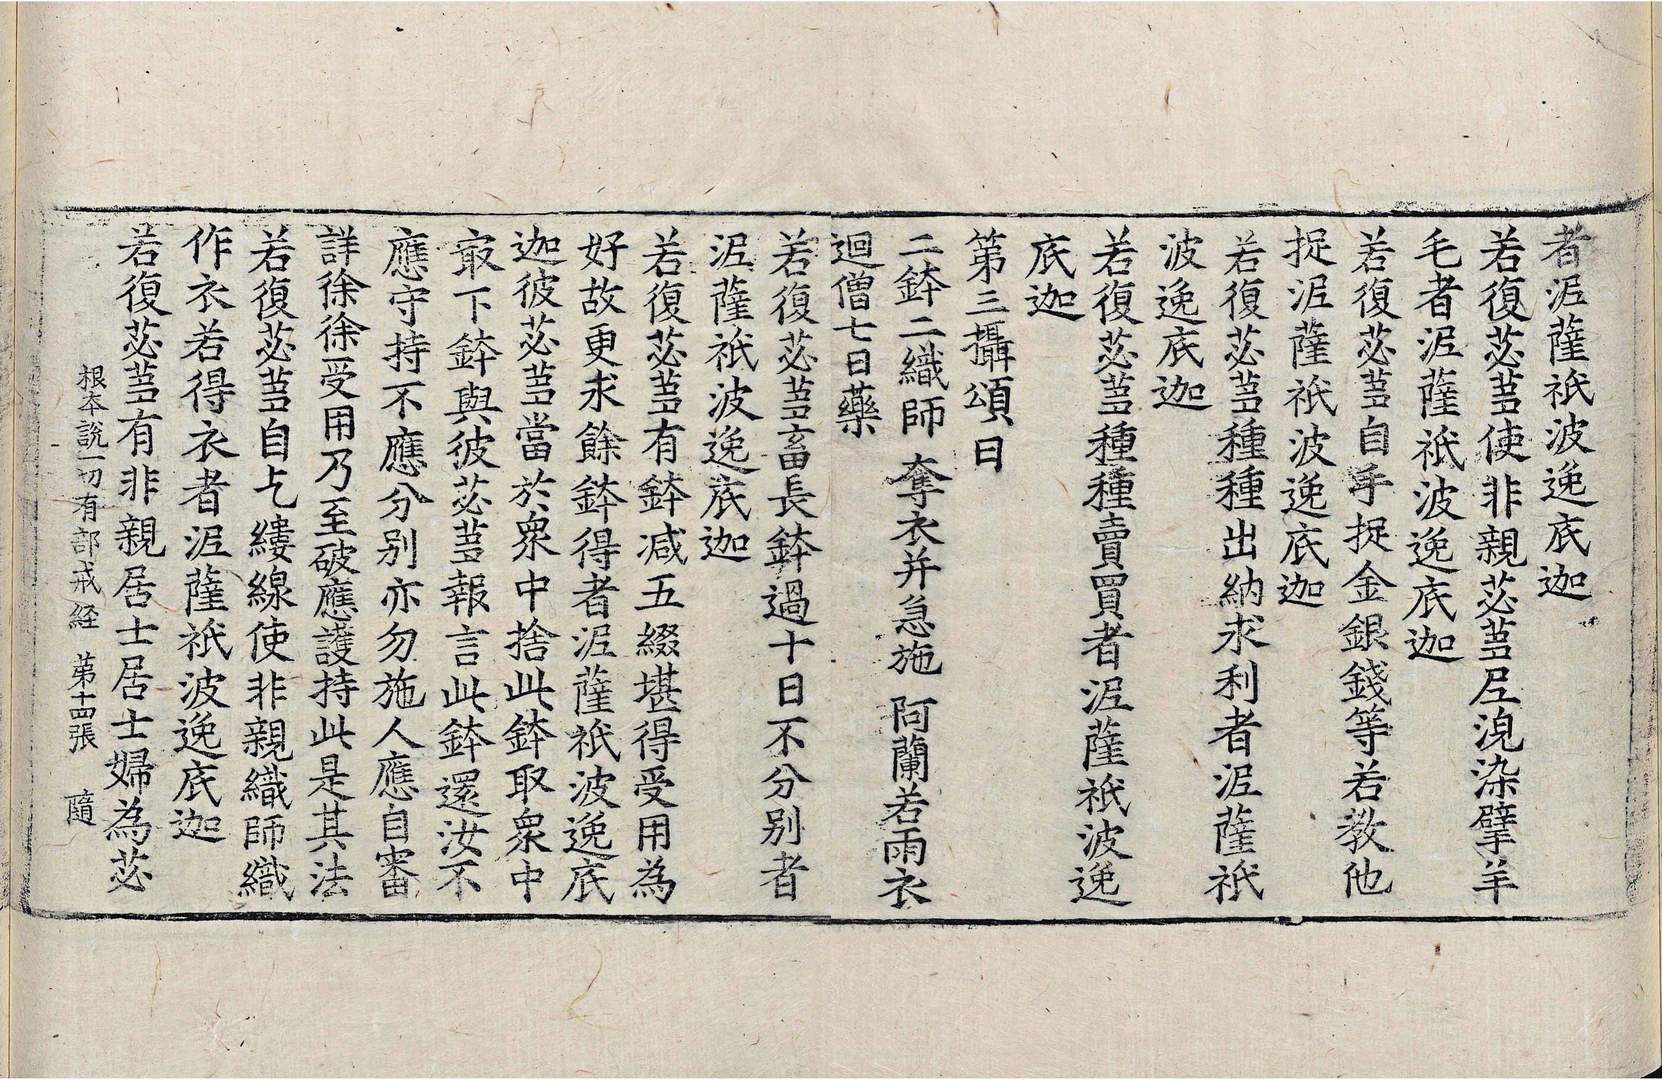 者泥薩祇波逸底迦
若復苾芻使非親苾芻尼浣染擘羊
毛者泥薩祇波逸底迦
若復苾芻自手捉金銀錢等若教他
捉泥薩祇波逸底迦
若復苾芻種種出納求利者泥薩祇
波逸底迦
若復苾芻種種賣買者泥薩祇波逸
底迦
第三攝頌曰
二鉢二織師 奪衣并急施 阿蘭若雨衣
迴僧七日藥
若復苾芻畜長鉢過十日不分別者
泥薩祇波逸底迦
若復苾芻有鉢减五綴堪得受用為
好故更求餘鉢得者泥薩祇波逸底
迦彼苾芻當於衆中捨此鉢取衆中
㝡下鉢與彼苾芻報言此鉢還汝不
應守持不應分别亦勿施人應自審
詳徐徐受用乃至破應護持此是其法
若復苾芻自乞縷線使非親織師織
作衣若得衣者泥薩祇波逸底迦
若復苾芻有非親居士居士婦為苾
根本說一切有部戒経 第十四張 隨